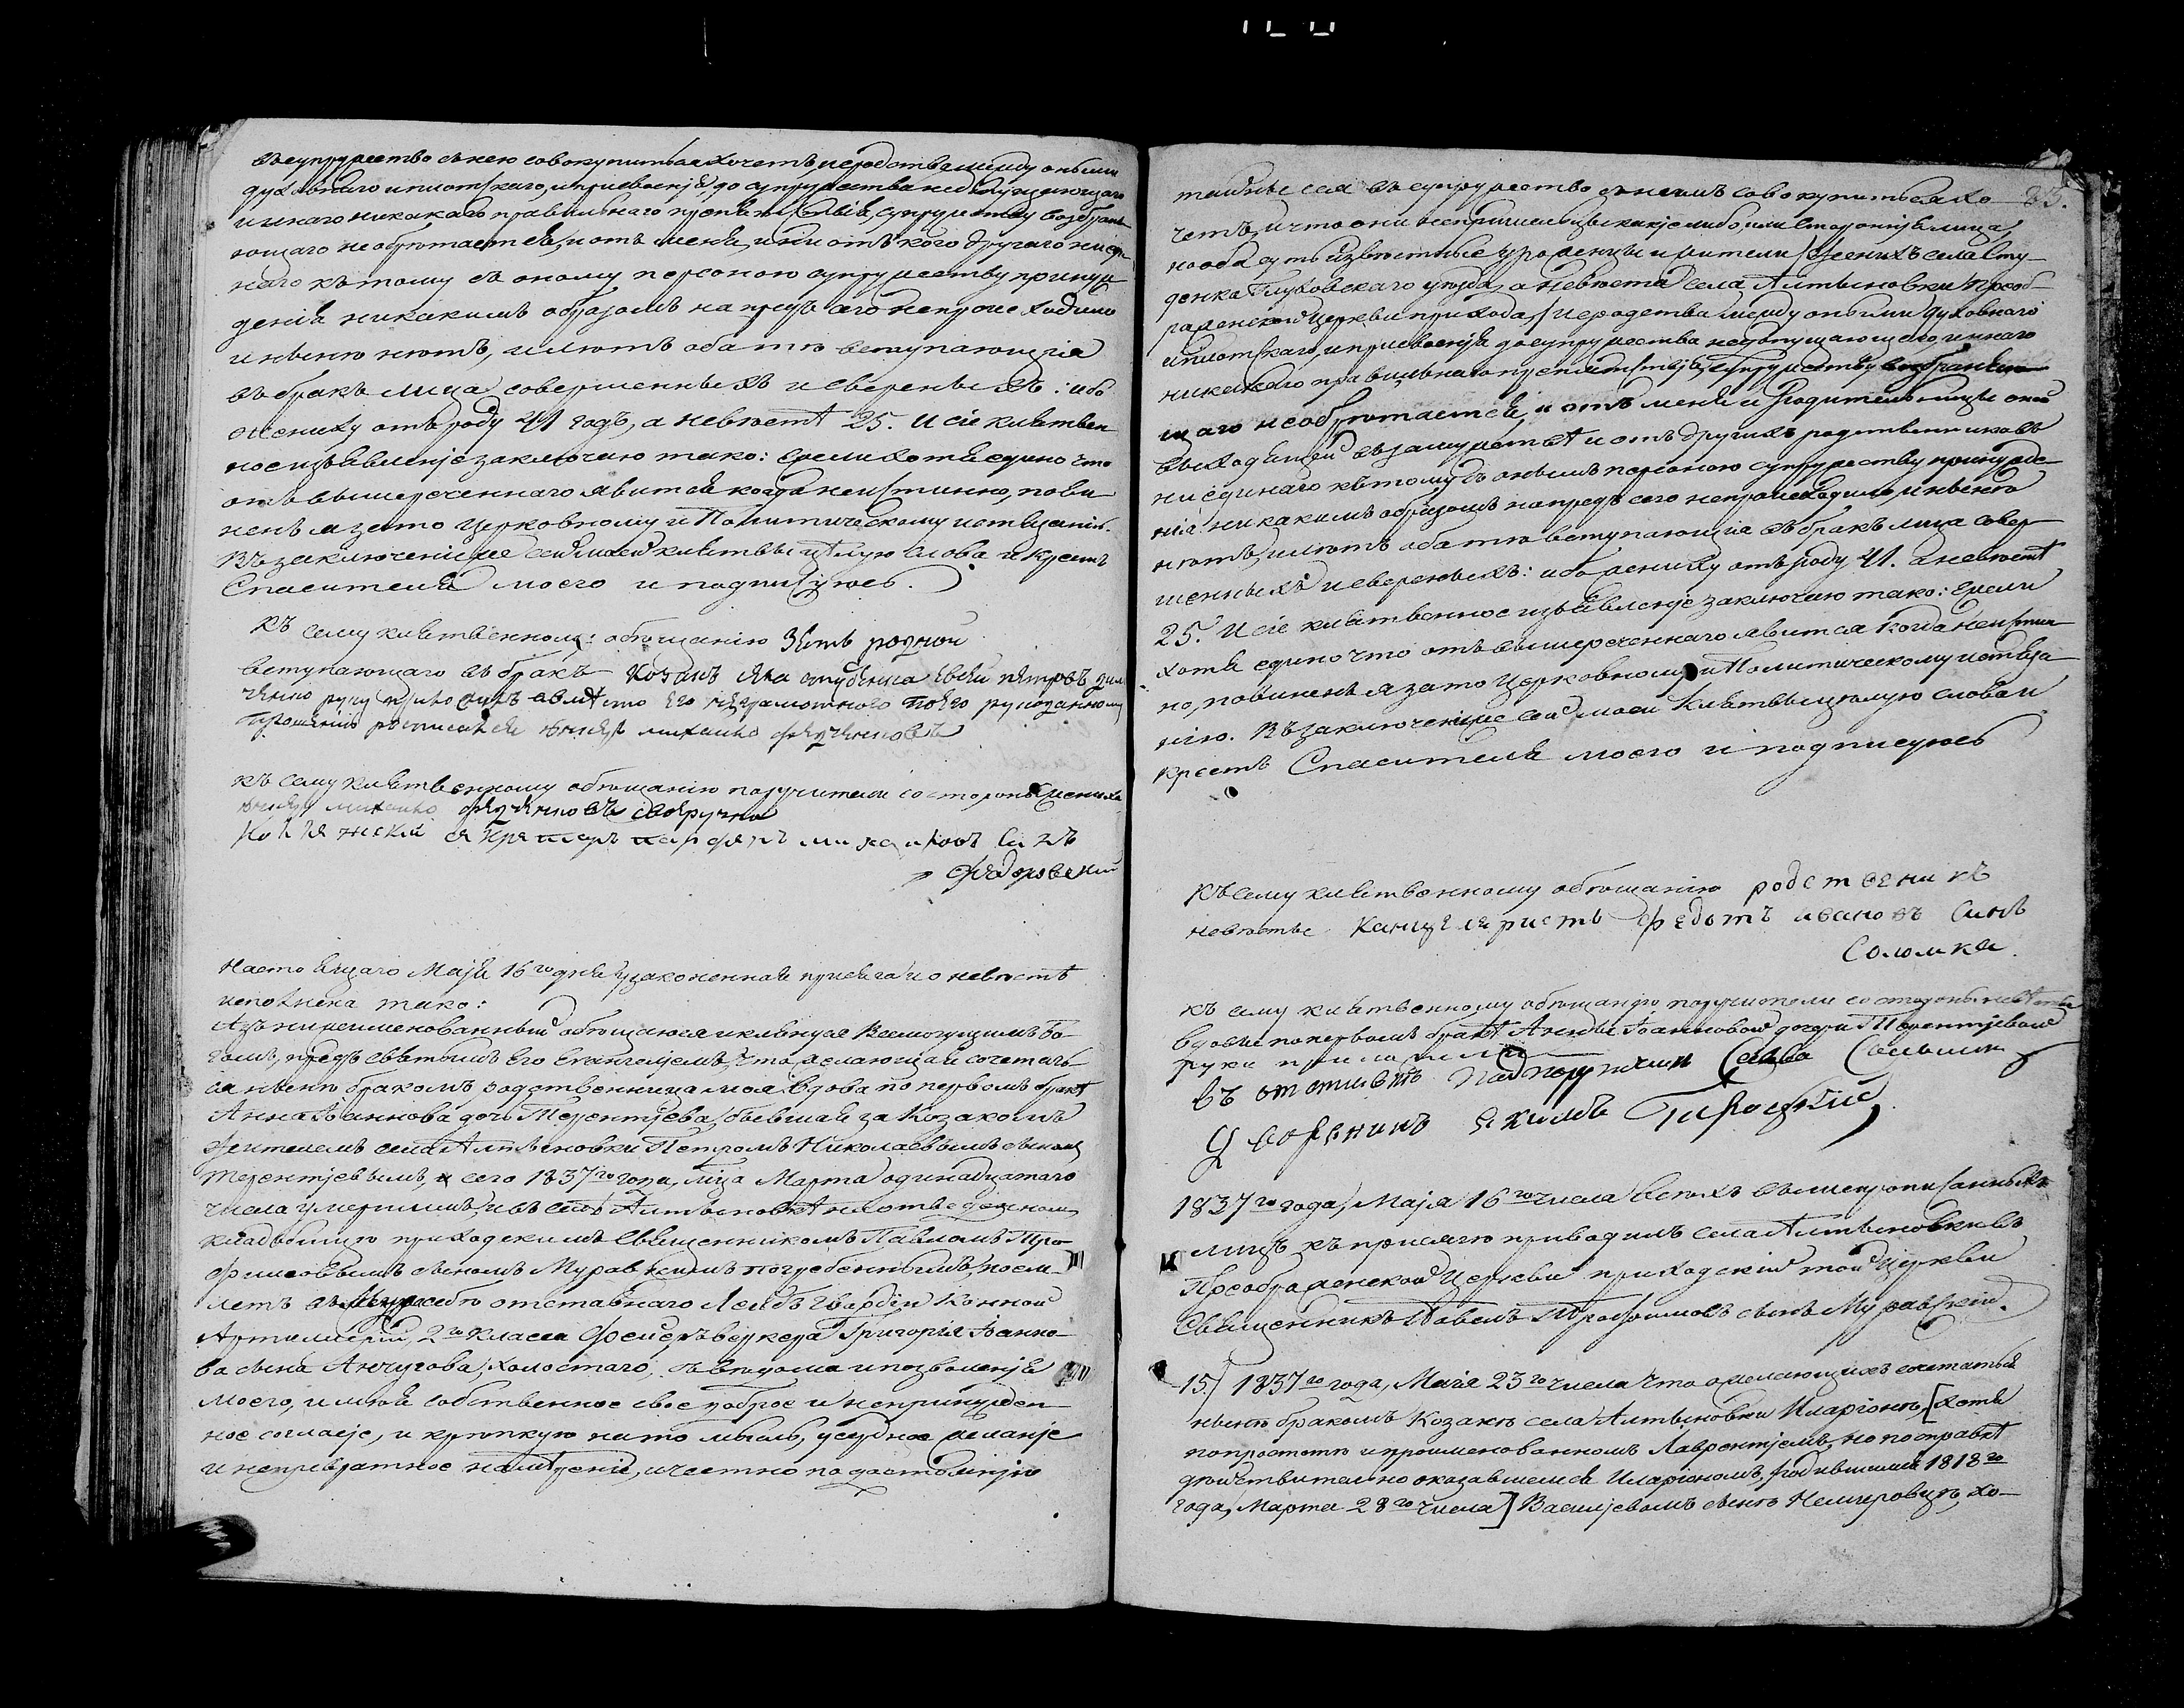 въ супружество съ нею совокупиться хочетъ, и сродства между оными
духовнаго и плотскаго, и присвоенія, до супружества недопущающаго
и инаго никакаго правильнаго препятствія, супружеству возбраня-
ющаго необрѣтается, и отъ меня, и ни отъ кого другаго ни еди-
наго къ тому съ оною персоною супружеству принуж-
денія никакимъ образомъ напредъ сего непроисходило
и нынѣ нѣтъ, и лѣтъ оба то вступающія
въ бракъ лица совершенныхъ и сверсныхъ: ибо
жениху отъ роду 41 годъ, а невѣстѣ 25. И сіе клятвен-
ное изъявленіе заключаю тако: ежели хотя едино что
отъ вышереченнаго явится когда неистинно, пови-
ненъ я за то Церковному и Политическому истязанію.
Въ заключеніи же сей моей клятвы цѣлую слова и крестъ
Спасителя моего и подписуюсь.
Къ сему клятвенному обѣщанію зять родной
вступающаго въ бракъ козакъ
руку приложилъ а вмѣсто его неграмотного по его рукоданному
прошенію росписался михайло
къ сему клятвенному обѣщанію поручители со стороны жениха
михайло
михайловъ синъ
Федоровский
Настоящаго Маія 16го дня узаконенная присяга и о невѣстѣ
исполнена тако:
Азъ нижеименованный обѣщаюся и клянуся Всемогущимъ Бо-
гомъ, предъ святымъ Его Евангеліемъ, что желающая сочетать-
ся нынѣ бракомъ родственница моя вдова по первомъ бракѣ
Анна Іоаннова дочь Терентіева, бывшая за Козакомъ
жителемъ села Алтыновки Петромъ Николаевымъ сыномъ
Терентіевымъ, сего 1837го года, мца Марта одинадцатаго
числа умершимъ, и въ селѣ Алтыновкѣ на отведенномъ
кладбищѣ приходскимъ Священникомъ Павломъ Тро-
фимовымъ сыномъ Муравскимъ погребеннымъ, поем-
летъ въ мужа себѣ отставнаго Лейбъ Гвардіи Конной
Артиллеріи 2го класса Фейерверкера Григорія Іанно-
ва сына Анчугова, холостаго, съ вѣдома и позволенія
моего, и имѣя собственное свое доброе и непринужден-
ное согласіе, и крѣпкую на то мысль, усердное желаніе
и непревратное намѣреніе, и честно по достоинству
таковые сея въ супружество съ нимъ совокупиться хо- 83.
четъ, и что они не пришельцы какіе либо, или сторонніе лица,
но оба суть извѣстные урожденцы и жители [женихъ села Сту-
денка Глуховскаго уѣзда, а невѣста села Алтыновки Преоб-
раженской Церкви прихода,] и сродства между оными духовнаго
и плотскаго, и присвоенія до супружества недопущающаго, и инаго
никакаго правильнаго препятствія, супружеству возбраняю-
щаго необрѣтается, и отъ меня и родительницы оной
выходящей въ замужство и отъ другихъ родственниковъ
ни единаго къ тому съ онымъ персоною супружеству принужде-
нія никакимъ образомъ напредъ сего непроисходило, и нынѣ
нѣтъ, и лѣтъ оба то вступающія въ бракъ лица совер-
шенныхъ и сверсныхъ: ибо жениху отъ роду 41. а невѣстѣ
25. И сіе клятвенное изъявленіе заключаю тако: ежели
хотя едино что отъ вышереченнаго явится когда неистин-
но, повиненъ я за то Церковному и Политическому истяза-
нію. Въ заключеніи же сей моей клятвы цѣлую слова и
крестъ Спасителя моего и подписуюсь
Къ сему клятвенному обѣщанію родственикъ
невѣсты Канцеляристъ Федотъ ивановъ синъ
Соломка.
къ сему клятвенному обѣщанію поручители со стороны невѣсты
вдовы по первомъ бракѣ Анны Іоанновой дочери Терентіевой
руки приложили
въ отставкѣ подпоручикъ Савва
Дворенинъ Якимъ
1837го года, Маія 16го числа всѣхъ вышепрописанныхъ
лицъ къ присягѣ приводилъ села Алтыновки
Преображенской Церкви приходскій той Церкви
Священникъ Павелъ Трофимовъ сынъ Муравскій.
15.] 1837го года, Маія 23го числа Что о желающихъ сочетаться
нынѣ бракомъ Козакѣ села Алтыновки Иларіонѣ, [хотя
по простотѣ и проименованномъ Лаврентіемъ, но по справкѣ
дѣйствительно оказавшемся Иларіономъ, родившимся 1818го
года, Марта 28го числа] Василіевомъ сынѣ Немеровцѣ, хо-